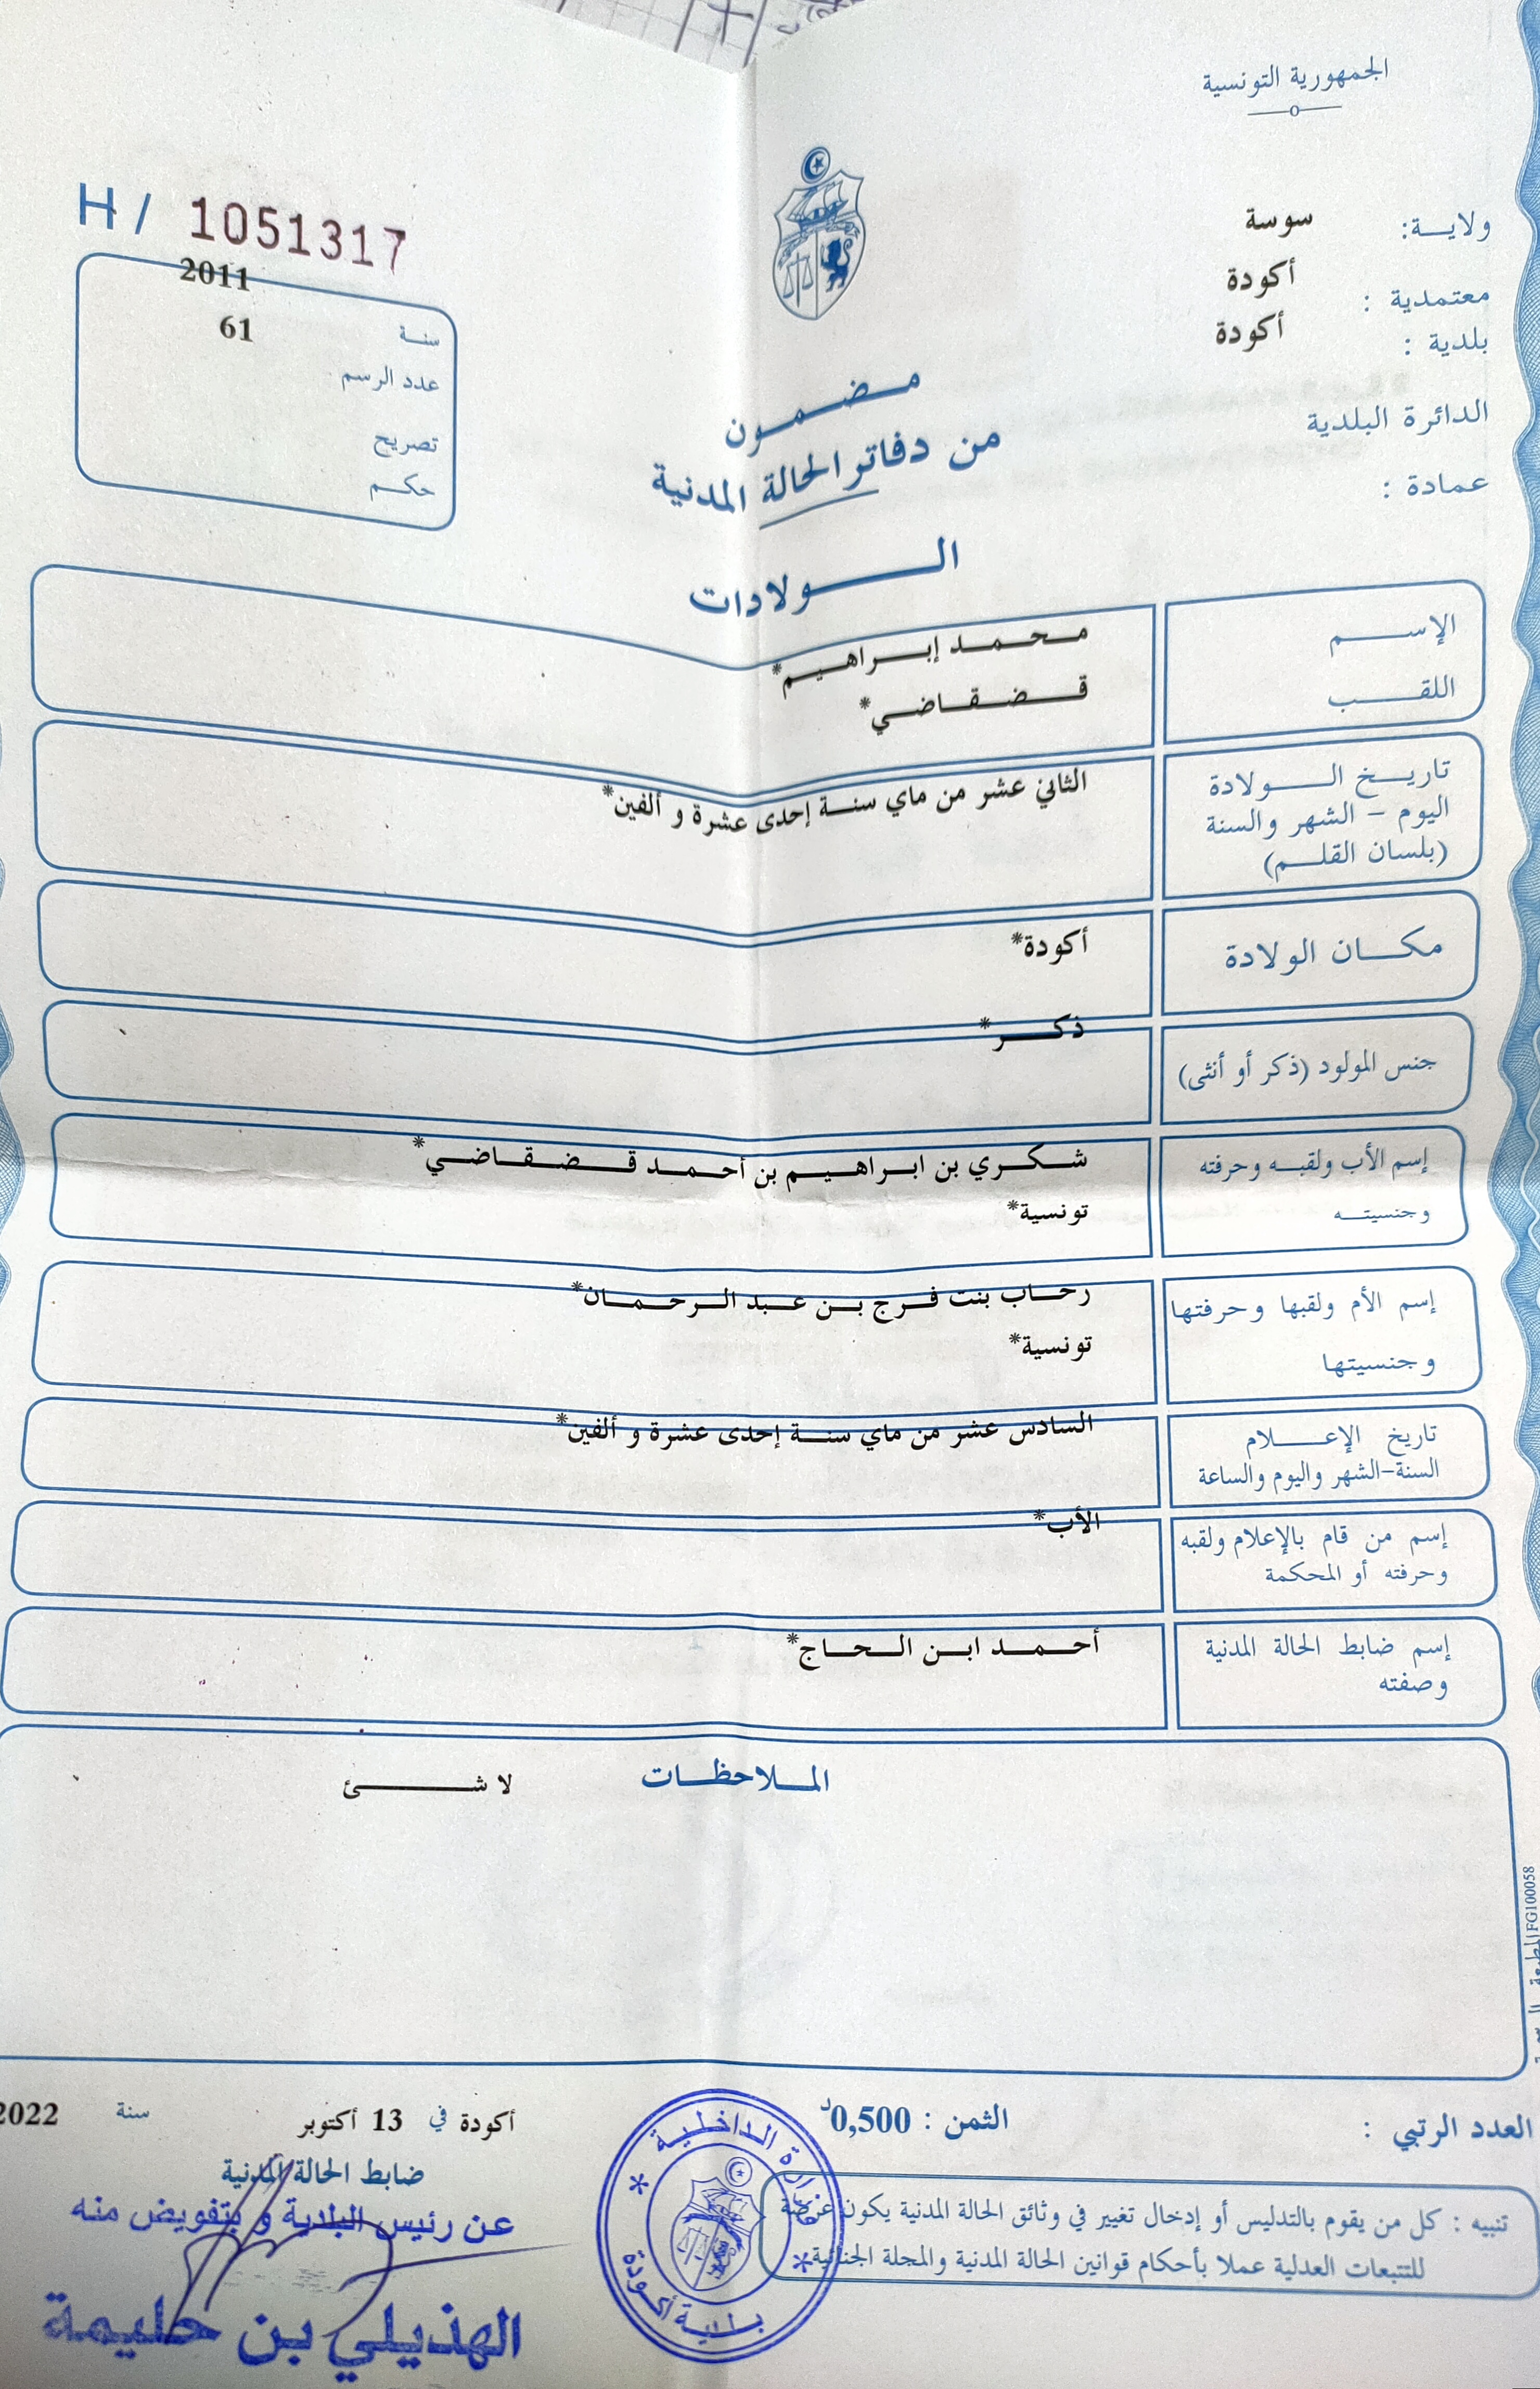 الجمهورية التونسية
ولاية: سوسة
معتمدية : أكودة
بلدية : أكودة
الدائرة البلدية
عمادة :
H / 1051317
سنة 2011
عدد الرسم 61
تصريح
حكم
مضمون
من دفاتر الحالة المدنية
الولادات
الإسم محمد إبراهيم*
اللقب قضقاضي*
تاريخ الولادة
اليوم – الشهر والسنة
(بلسان القلم)
الثاني عشر من ماي سنة إحدى عشرة و ألفين*
مكان الولادة أكودة*
جنس المولود (ذكر أو أنثى) ذكر*
إسم الأب ولقبه وحرفته شكري بن ابراهيم بن أحمد قضقاضي*
وجنسيته تونسية*
إسم الأم ولقبها وحرفتها رحاب بنت فرج بن عبد الرحمان*
وجنسيتها تونسية*
تاريخ الإعلام السادس عشر من ماي سنة إحدى عشرة و ألفين*
السنة-الشهر واليوم والساعة
إسم من قام بالإعلام ولقبه الأب*
وحرفته أو المحكمة
إسم ضابط الحالة المدنية أحمد ابن الحاج*
وصفته
الملاحظات لا شئ
FG100058
العدد الرتبي :
الثمن : 0,500د
أكودة في 13 أكتوبر سنة 2022
ضابط الحالة المدنية
عن رئيس البلدية و بتفويض منه
الهذيلي بن حليمة
وزارة الداخلية
بلدية أكودة
تنبيه : كل من يقوم بالتدليس أو إدخال تغيير في وثائق الحالة المدنية يكون عرضة
للتتبعات العدلية عملا بأحكام قوانين الحالة المدنية والمجلة الجنائية